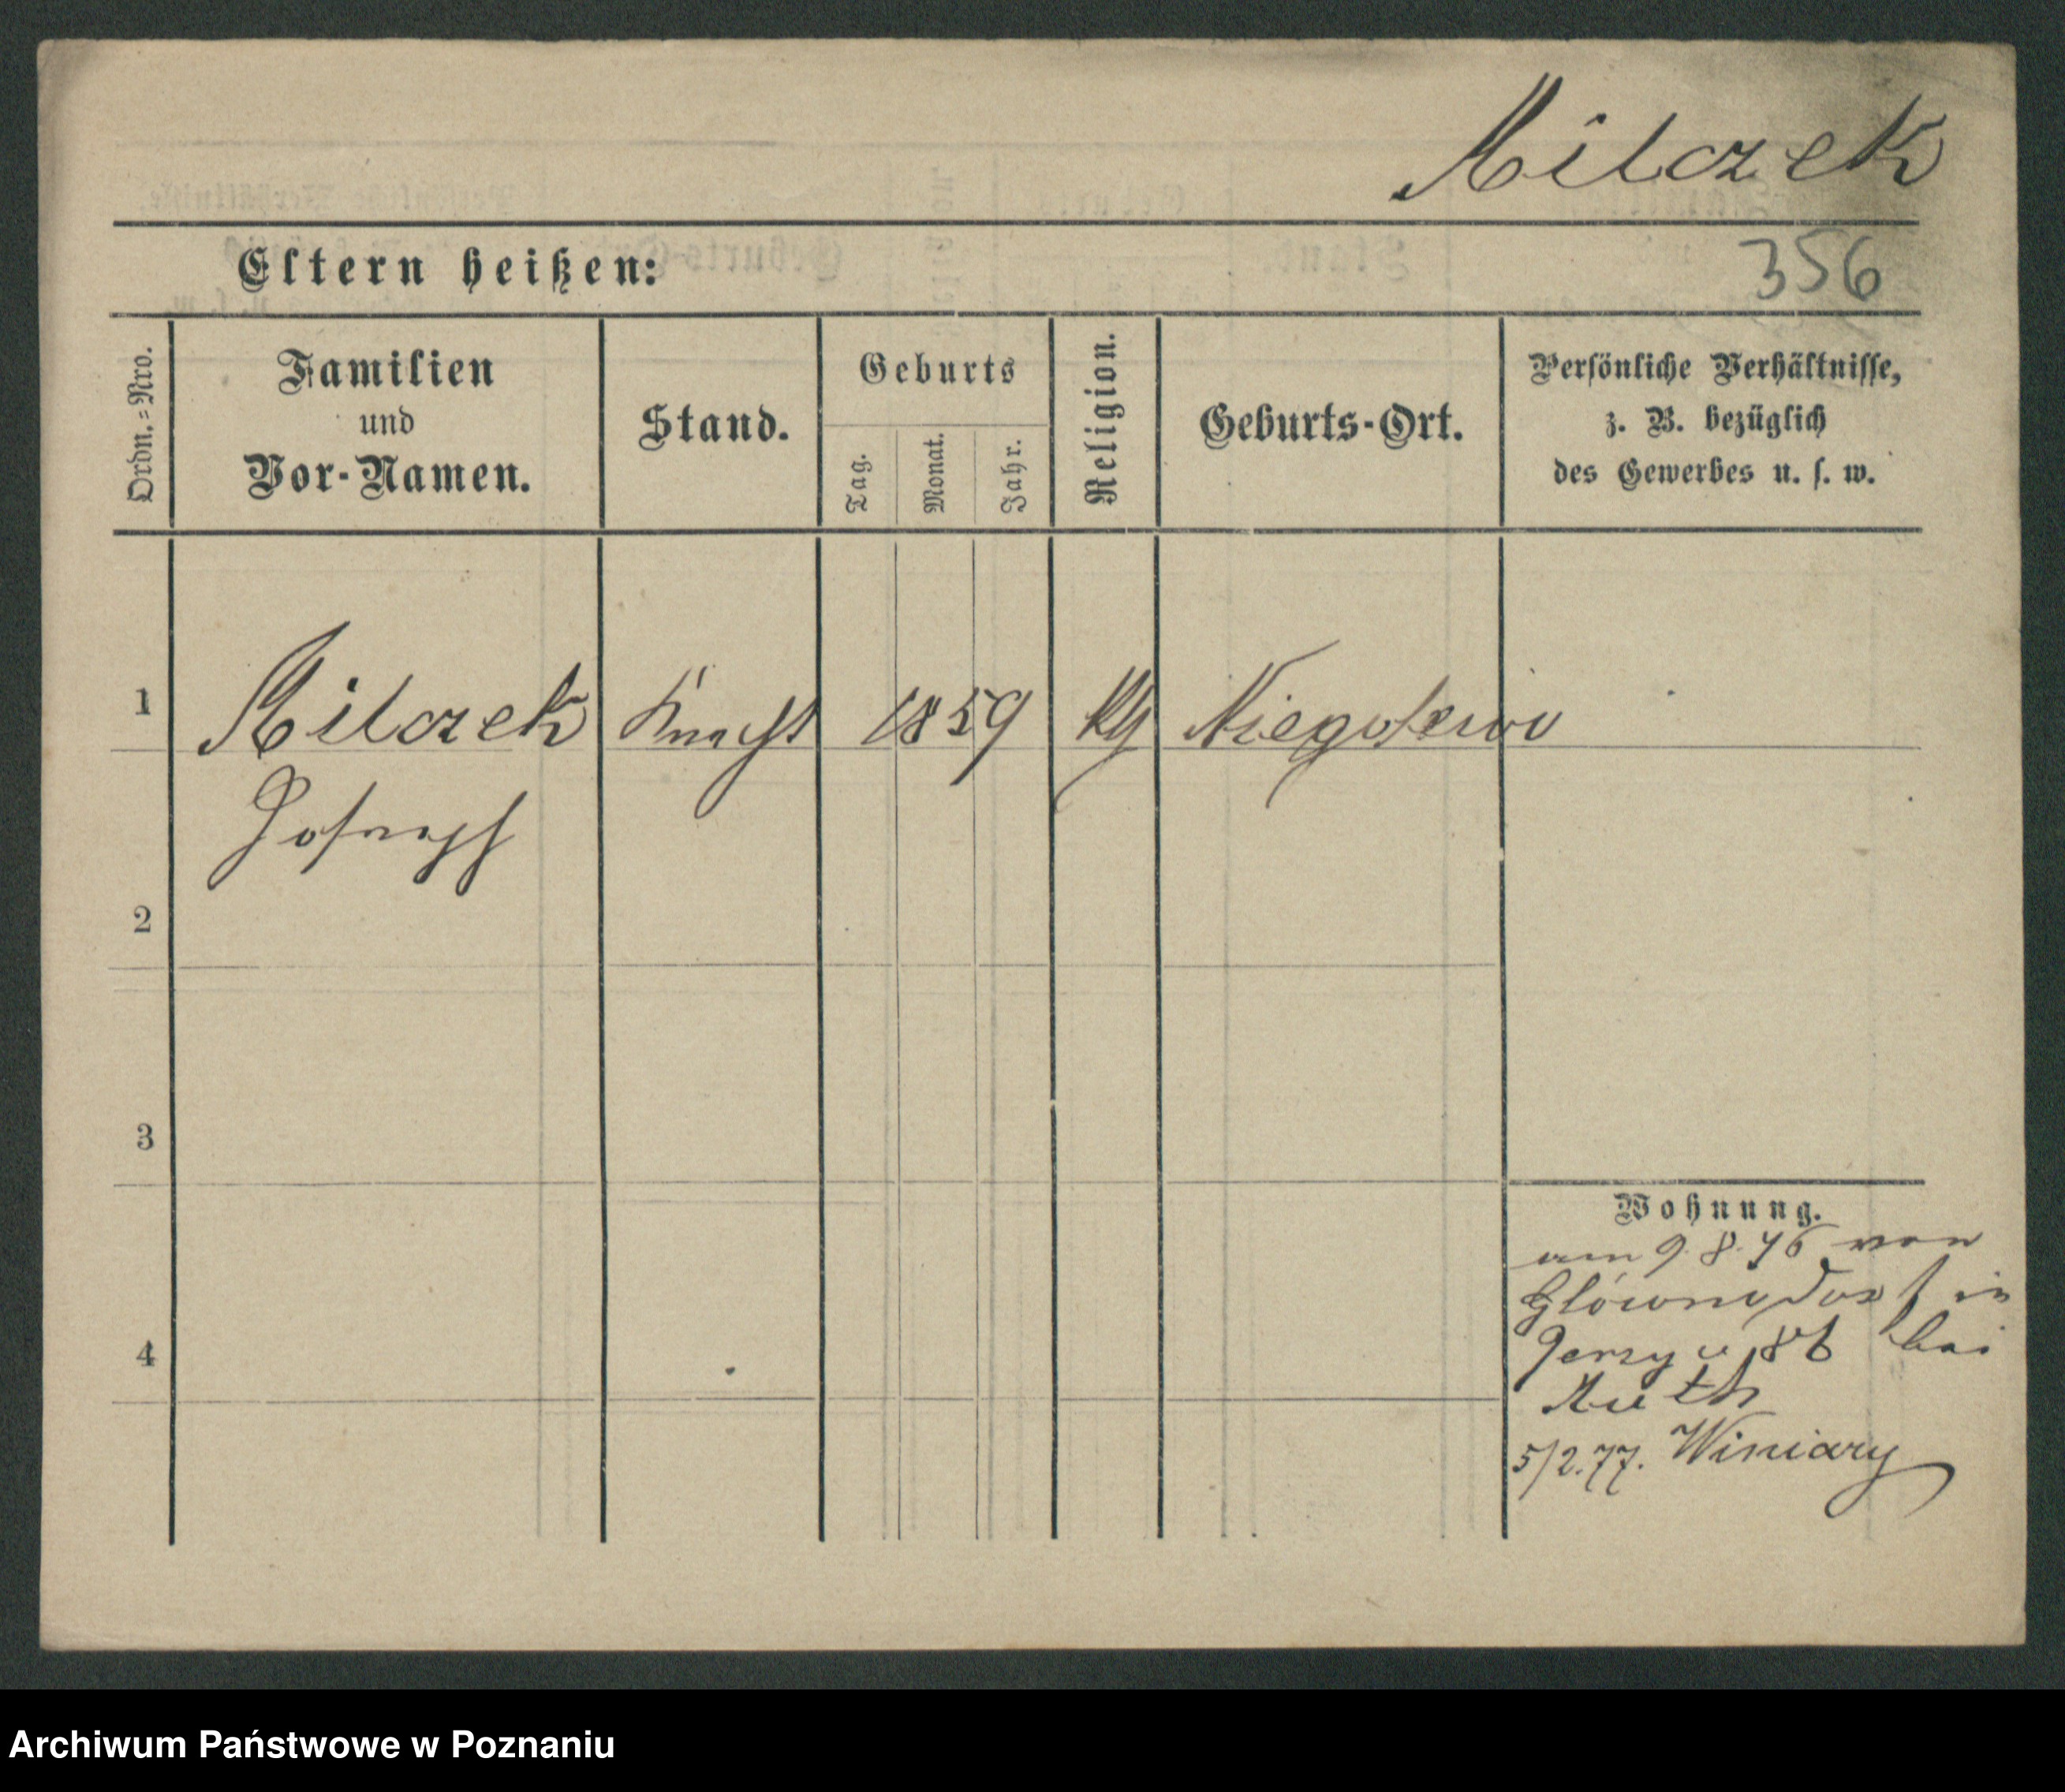 Milczek
Eltern heißen:
356
Ordn.=Nro.
Familien
und
Vor-Namen.
Stand.
Geburts
Tag.
Monat.
Jahr.
Religion.
Geburts-Ort.
Persönliche Verhältnisse,
z. B. bezüglich
des Gewerbes u. s. w.
1
Milczek
Knecht
1859
Kth
Niegolewo
Joseph
2
3
4
Wohnung.
am 9. 8. 76 von
Glowno Dorf in
Jerzyce 86 bei
Muth
5/2.77. Winiary
Archiwum Państwowe w Poznaniu